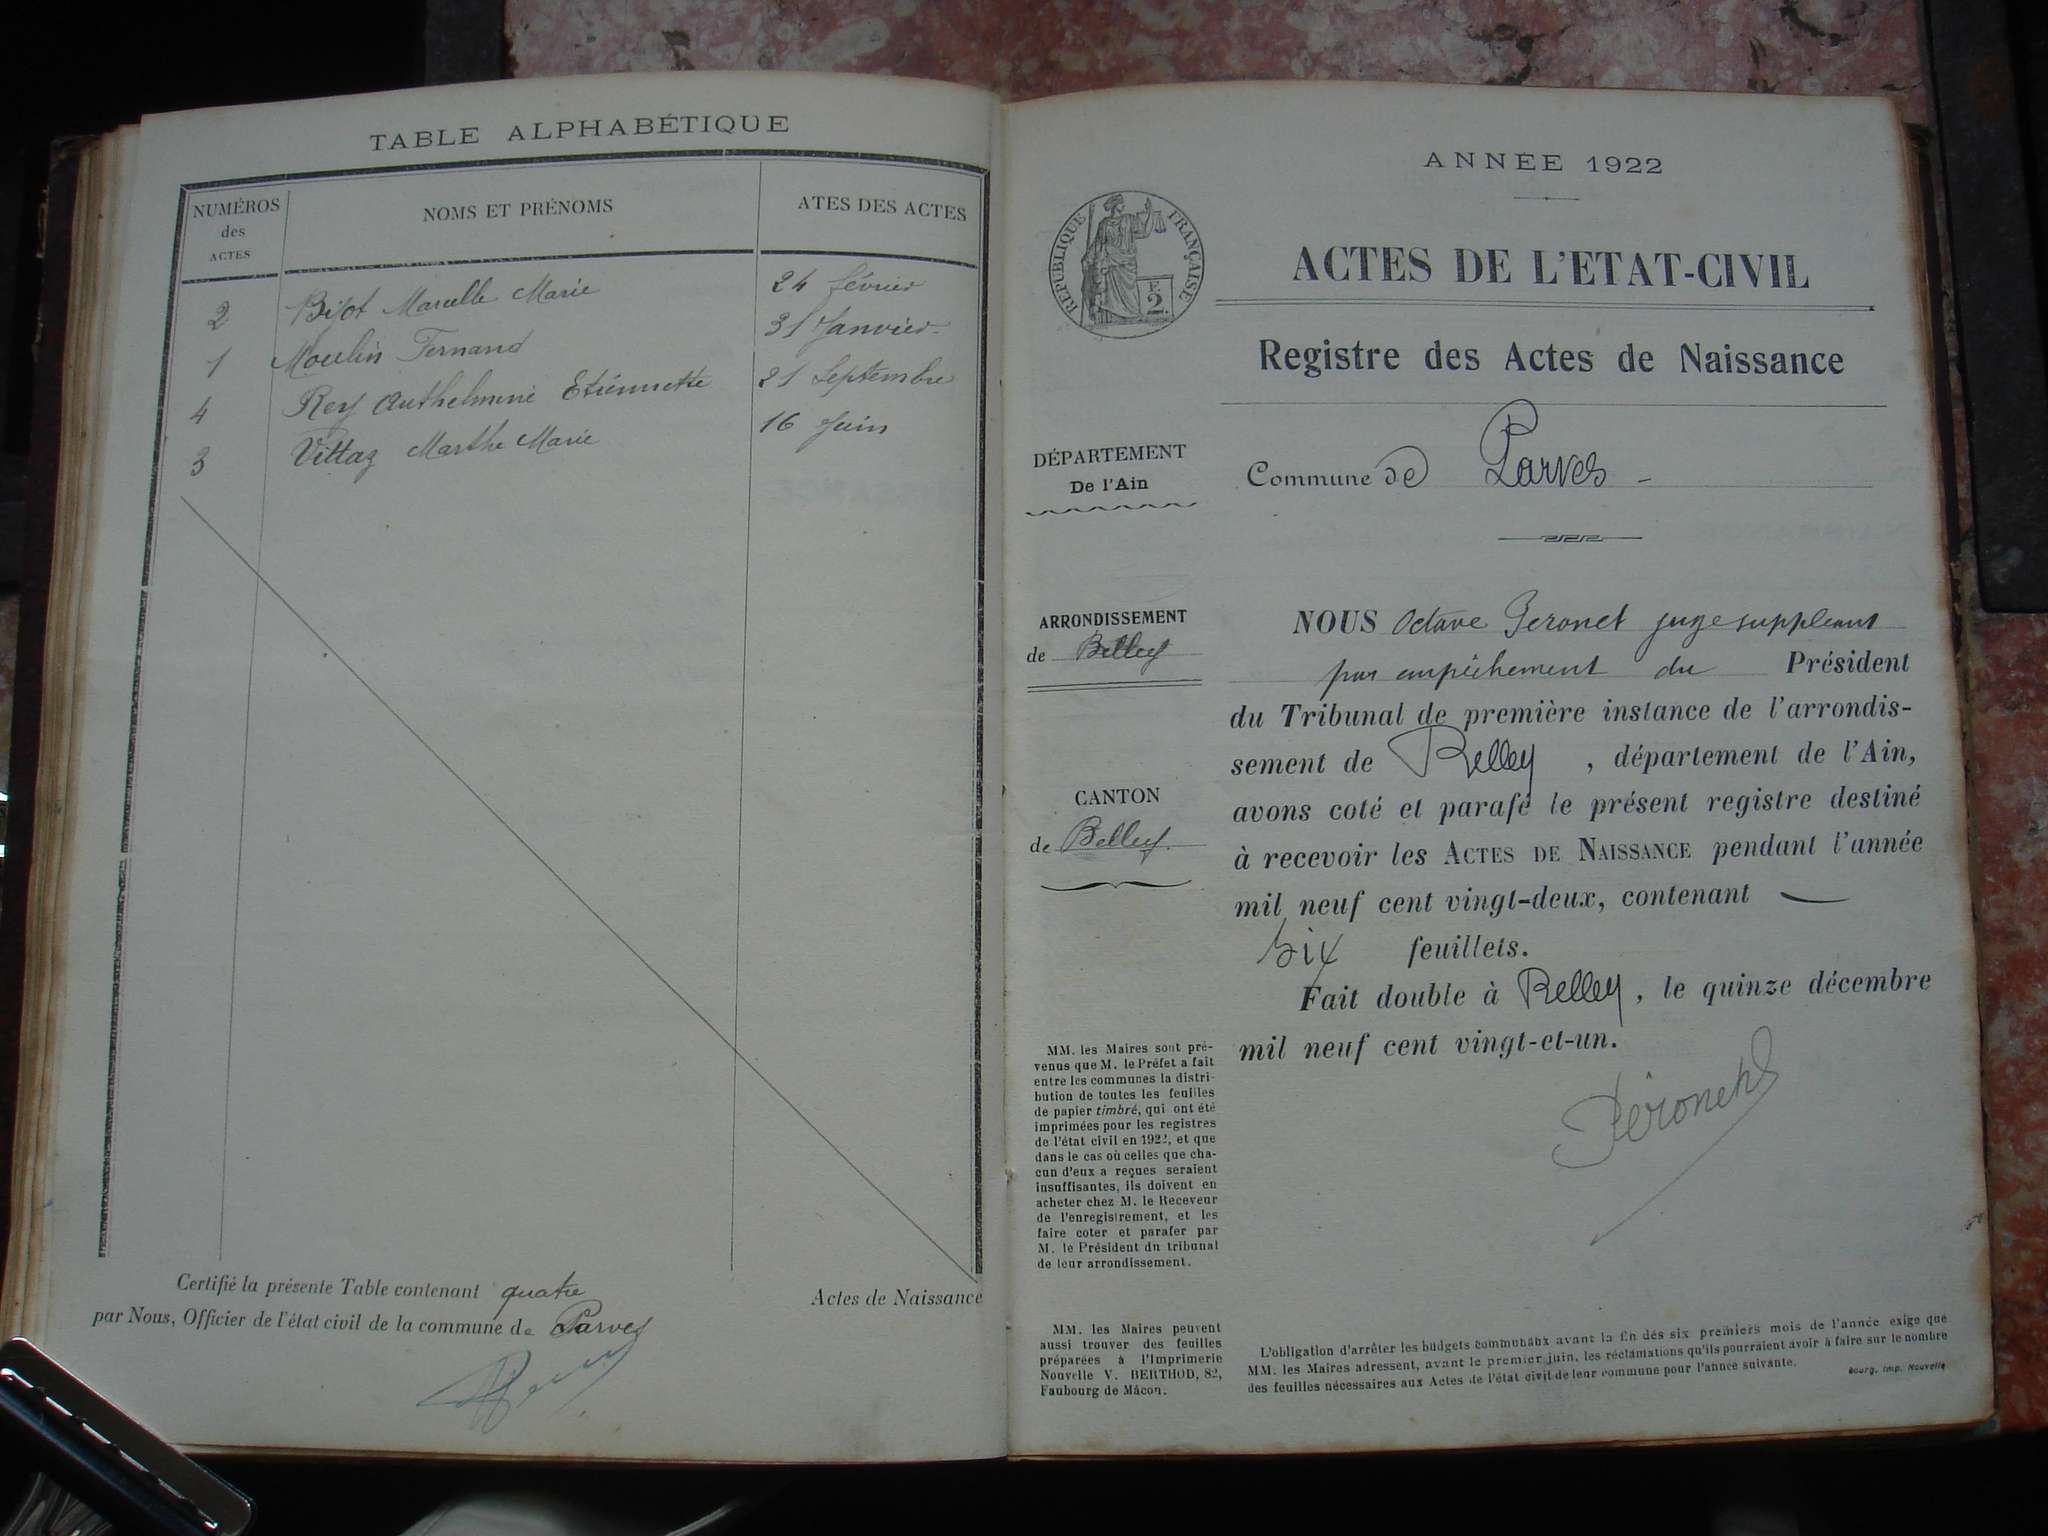 TABLE ALPHABÉTIQUE
NUMÉROS
des
ACTES
NOMS ET PRÉNOMS
ATES DES ACTES
2 Marcelle Marie 24 février
1 Moulin Fernand 31 Janvier
4 Rey Anthelmine Etiennette 21 Septembre
3 Vittaz Marthe Marie 16 Juin
Certifié la présente Table contenant quatre Actes de Naissance
par Nous, Officier de l'état civil de la commune de Parves
ANNÉE 1922
RÉPUBLIQUE FRANÇAISE
2
ACTES DE L'ETAT-CIVIL
Registre des Actes de Naissance
DÉPARTEMENT
De l'Ain
Commune de Parves
ARRONDISSEMENT
de Belley
CANTON
de Belley
NOUS Octave Péronet juge suppléant
par empêchement du Président
du Tribunal de première instance de l'arrondis-
sement de Belley, département de l'Ain,
avons coté et parafé le présent registre destiné
à recevoir les ACTES DE NAISSANCE pendant l'année
mil neuf cent vingt-deux, contenant
six feuillets.
Fait double à Belley, le quinze décembre
mil neuf cent vingt-et-un.
Péronet
MM. les Maires sont pré-
venus que M. le Préfet a fait
entre les communes la distri-
bution de toutes les feuilles
de papier timbré, qui ont été
imprimées pour les registres
de l'état civil en 1922, et que
dans le cas où celles que cha-
cun d'eux a reçues seraient
insuffisantes, ils doivent en
acheter chez M. le Receveur
de l'enregistrement, et les
faire coter et parafer par
M. le Président du tribunal
de leur arrondissement.
MM. les Maires peuvent
aussi trouver des feuilles
préparées à l'Imprimerie
Nouvelle V. BERTHOD, 82,
Faubourg de Mâcon.
L'obligation d'arrêter les budgets communaux avant la fin des six premiers mois de l'année exige que
MM. les Maires adressent, avant le premier juin, les réclamations qu'ils pourraient avoir à faire sur le nombre
des feuilles nécessaires aux Actes de l'état civil de leur commune pour l'année suivante.
Bourg, Imp. Nouvelle